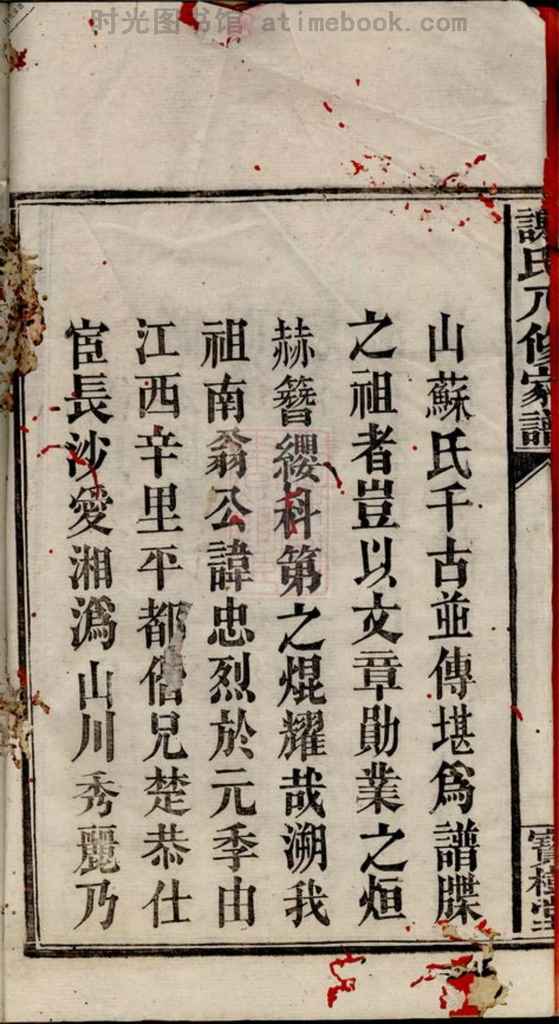 时光图书馆 atimebook.com
謝氏八修家譜
寶樹堂
山蘇氏千古並傳堪爲譜牒
之祖者豈以文章勛業之烜
赫簪纓科第之焜耀哉溯我
祖南翁公諱忠烈於元季由
江西辛里平都偕兄楚恭仕
宦長沙愛湘潙山川秀麗乃